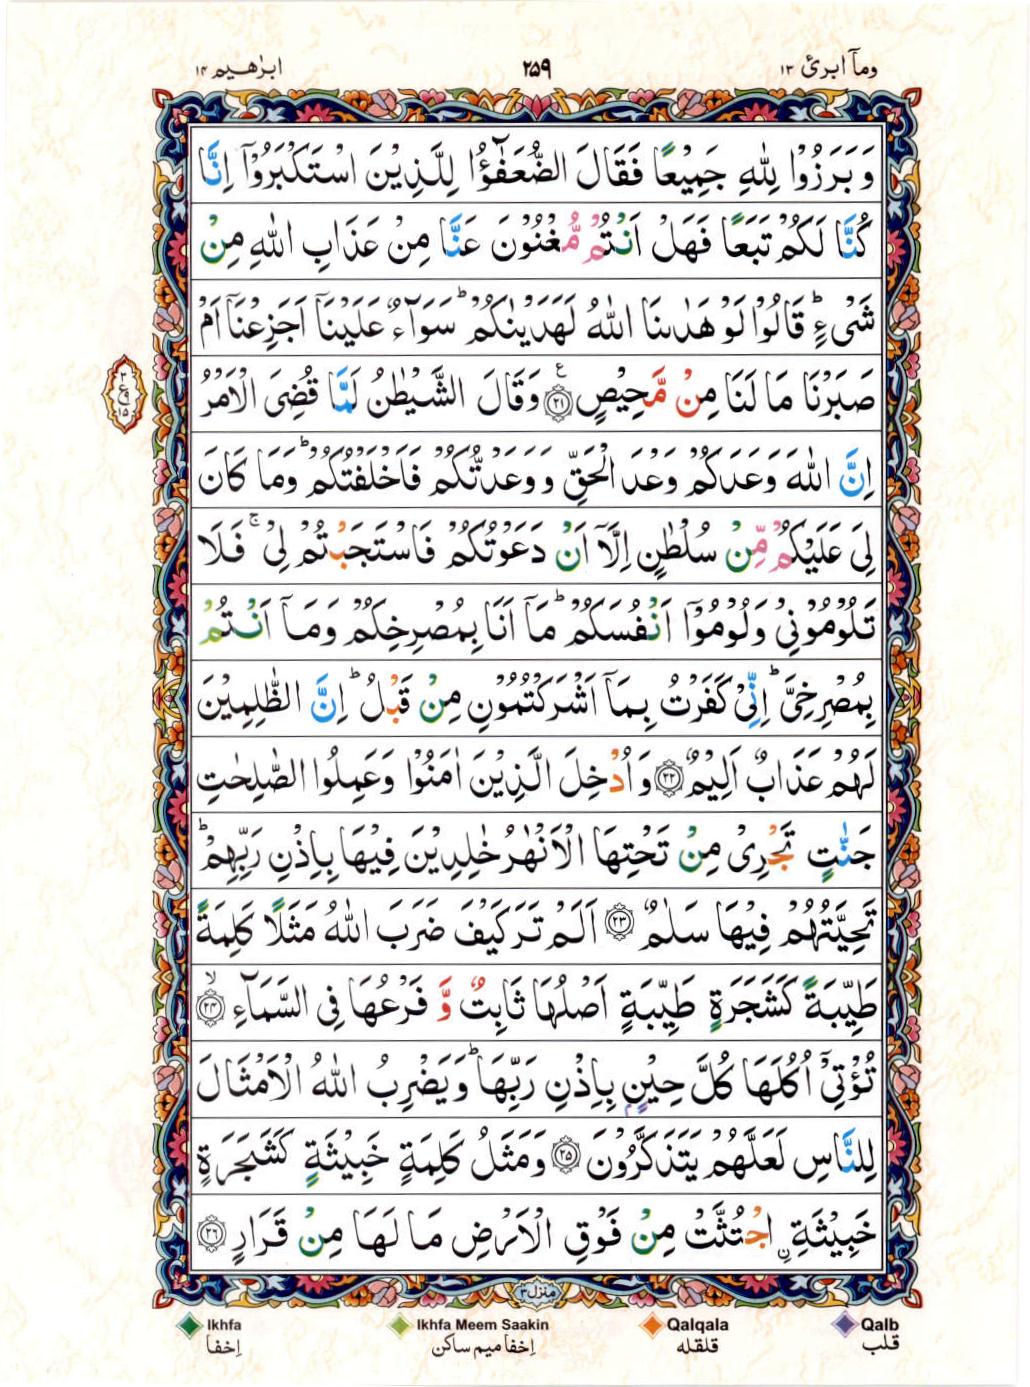 وماۤ ابرئ ١٣ ٢٥٩ ابرٰهيم ١٤
وَبَرَزُوْا لِلّٰهِ جَمِيْعًا فَقَالَ الضُّعَفٰٓؤُا لِلَّذِيْنَ اسْتَكْبَرُوْۤا اِنَّا
كُنَّا لَكُمْ تَبَعًا فَهَلْ اَنْتُمْ مُّغْنُوْنَ عَنَّا مِنْ عَذَابِ اللّٰهِ مِنْ
شَىْءٍ ؕ قَالُوْا لَوْ هَدٰٮنَا اللّٰهُ لَهَدَيْنٰكُمْ ؕ سَوَآءٌ عَلَيْنَاۤ اَجَزِعْنَاۤ اَمْ
صَبَرْنَا مَا لَنَا مِنْ مَّحِيْصٍ ࣖ ﴿٢١﴾ وَقَالَ الشَّيْطٰنُ لَمَّا قُضِىَ الْاَمْرُ
٣
ع
١٥
اِنَّ اللّٰهَ وَعَدَكُمْ وَعْدَ الْحَقِّ وَوَعَدْتُّكُمْ فَاَخْلَفْتُكُمْ ؕ وَمَا كَانَ
لِىَ عَلَيْكُمْ مِّنْ سُلْطٰنٍ اِلَّاۤ اَنْ دَعَوْتُكُمْ فَاسْتَجَبْتُمْ لِىْ ۚ فَلَا
تَلُوْمُوْنِىْ وَلُوْمُوْۤا اَنْفُسَكُمْ ؕ مَاۤ اَنَا بِمُصْرِخِكُمْ وَمَاۤ اَنْتُمْ
بِمُصْرِخِىَّ ؕ اِنِّىْ كَفَرْتُ بِمَاۤ اَشْرَكْتُمُوْنِ مِنْ قَبْلُ ؕ اِنَّ الظّٰلِمِيْنَ
لَهُمْ عَذَابٌ اَلِيْمٌ ﴿٢٢﴾ وَاُدْخِلَ الَّذِيْنَ اٰمَنُوْا وَعَمِلُوا الصّٰلِحٰتِ
جَنّٰتٍ تَجْرِىْ مِنْ تَحْتِهَا الْاَنْهٰرُ خٰلِدِيْنَ فِيْهَا بِاِذْنِ رَبِّهِمْ ؕ
تَحِيَّتُهُمْ فِيْهَا سَلٰمٌ ﴿٢٣﴾ اَلَمْ تَرَ كَيْفَ ضَرَبَ اللّٰهُ مَثَلًا كَلِمَةً
طَيِّبَةً كَشَجَرَةٍ طَيِّبَةٍ اَصْلُهَا ثَابِتٌ وَّ فَرْعُهَا فِى السَّمَآءِ ۙ ﴿٢٤﴾
تُؤْتِىْۤ اُكُلَهَا كُلَّ حِيْنٍۢ بِاِذْنِ رَبِّهَا ؕ وَيَضْرِبُ اللّٰهُ الْاَمْثَالَ
لِلنَّاسِ لَعَلَّهُمْ يَتَذَكَّرُوْنَ ﴿٢٥﴾ وَمَثَلُ كَلِمَةٍ خَبِيْثَةٍ كَشَجَرَةٍ
خَبِيْثَةِ ۟اجْتُثَّتْ مِنْ فَوْقِ الْاَرْضِ مَا لَهَا مِنْ قَرَارٍ ﴿٢٦﴾
منزل٣
Ikhfa Ikhfa Meem Saakin Qalqala Qalb
اِخفا اِخفا ميم ساكن قلقله قلب